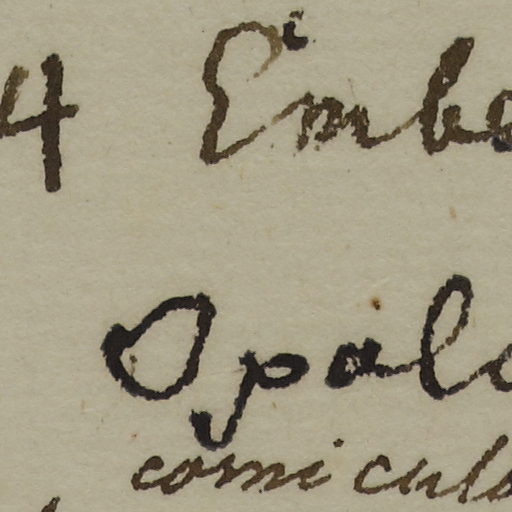 4 Embe
Opalo
corniculo